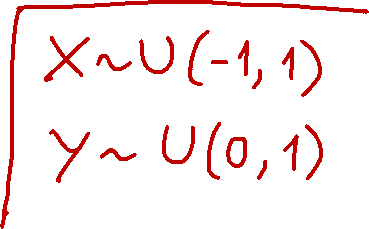 X~U(-1, 1)
Y~U(0, 1)